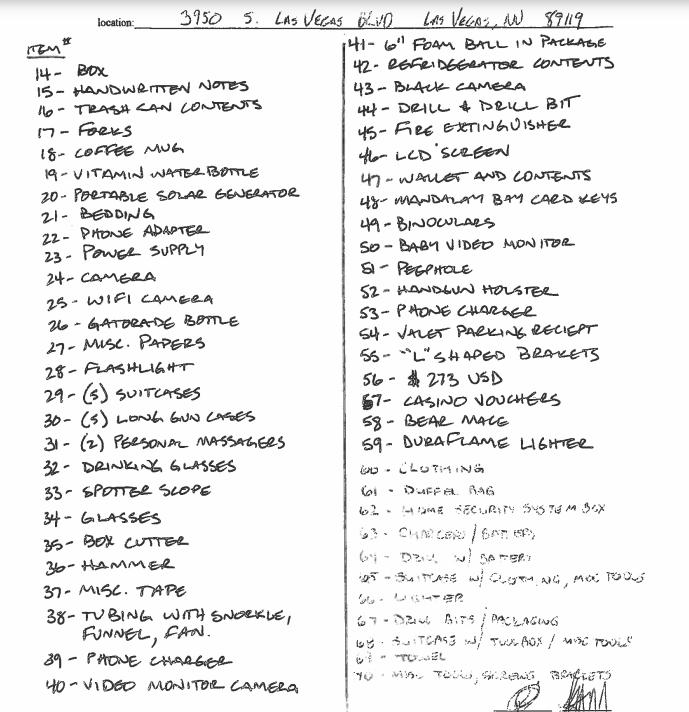 location: 3950 S. LAS VEGAS BLVD LAS VEGAS, NV 89119
ITEM #
14 - BOX
15 - HANDWRITTEN NOTES
16 - TRASH CAN CONTENTS
17 - FORKS
18 - COFFEE MUG
19 - VITAMIN WATER BOTTLE
20 - PORTABLE SOLAR GENERATOR
21 - BEDDING
22 - PHONE ADAPTER
23 - POWER SUPPLY
24 - CAMERA
25 - WIFI CAMERA
26 - GATORADE BOTTLE
27 - MISC. PAPERS
28 - FLASHLIGHT
29 - (5) SUITCASES
30 - (5) LONG GUN CASES
31 - (2) PERSONAL MASSAGERS
32 - DRINKING GLASSES
33 - SPOTTER SCOPE
34 - GLASSES
35 - BOX CUTTER
36 - HAMMER
37 - MISC. TAPE
38 - TUBING WITH SNORKLE,
FUNNEL, FAN.
39 - PHONE CHARGER
40 - VIDEO MONITOR CAMERA
41 - 6" FOAM BALL IN PACKAGE
42 - REFRIDGERATOR CONTENTS
43 - BLACK CAMERA
44 - DRILL & DRILL BIT
45 - FIRE EXTINGUISHER
46 - LCD SCREEN
47 - WALLET AND CONTENTS
48 - MANDALAY BAY CARD KEYS
49 - BINOCULARS
50 - BABY VIDEO MONITOR
51 - PEEPHOLE
52 - HANDGUN HOLSTER
53 - PHONE CHARGER
54 - VALET PARKING RECIEPT
55 - "L" SHAPED BRAKETS
56 - $ 273 USD
57 - CASINO VOUCHERS
58 - BEAR MACE
59 - DURAFLAME LIGHTER
60 - CLOTHING
61 - DUFFEL BAG
62 - HOME SECURITY SYSTEM BOX
63 - CHARGERS / BATTERY
64 - DRILL W/ BATTERY
65 - SUITCASE W/ CLOTHING, MISC TOOLS
66 - LIGHTER
67 - DRILL BITS / PACKAGING
68 - SUITCASE W/ TOOLBOX / MISC TOOLS
69 - TOWEL
70 - MISC TOOLS, SCREWS, BRACKETS